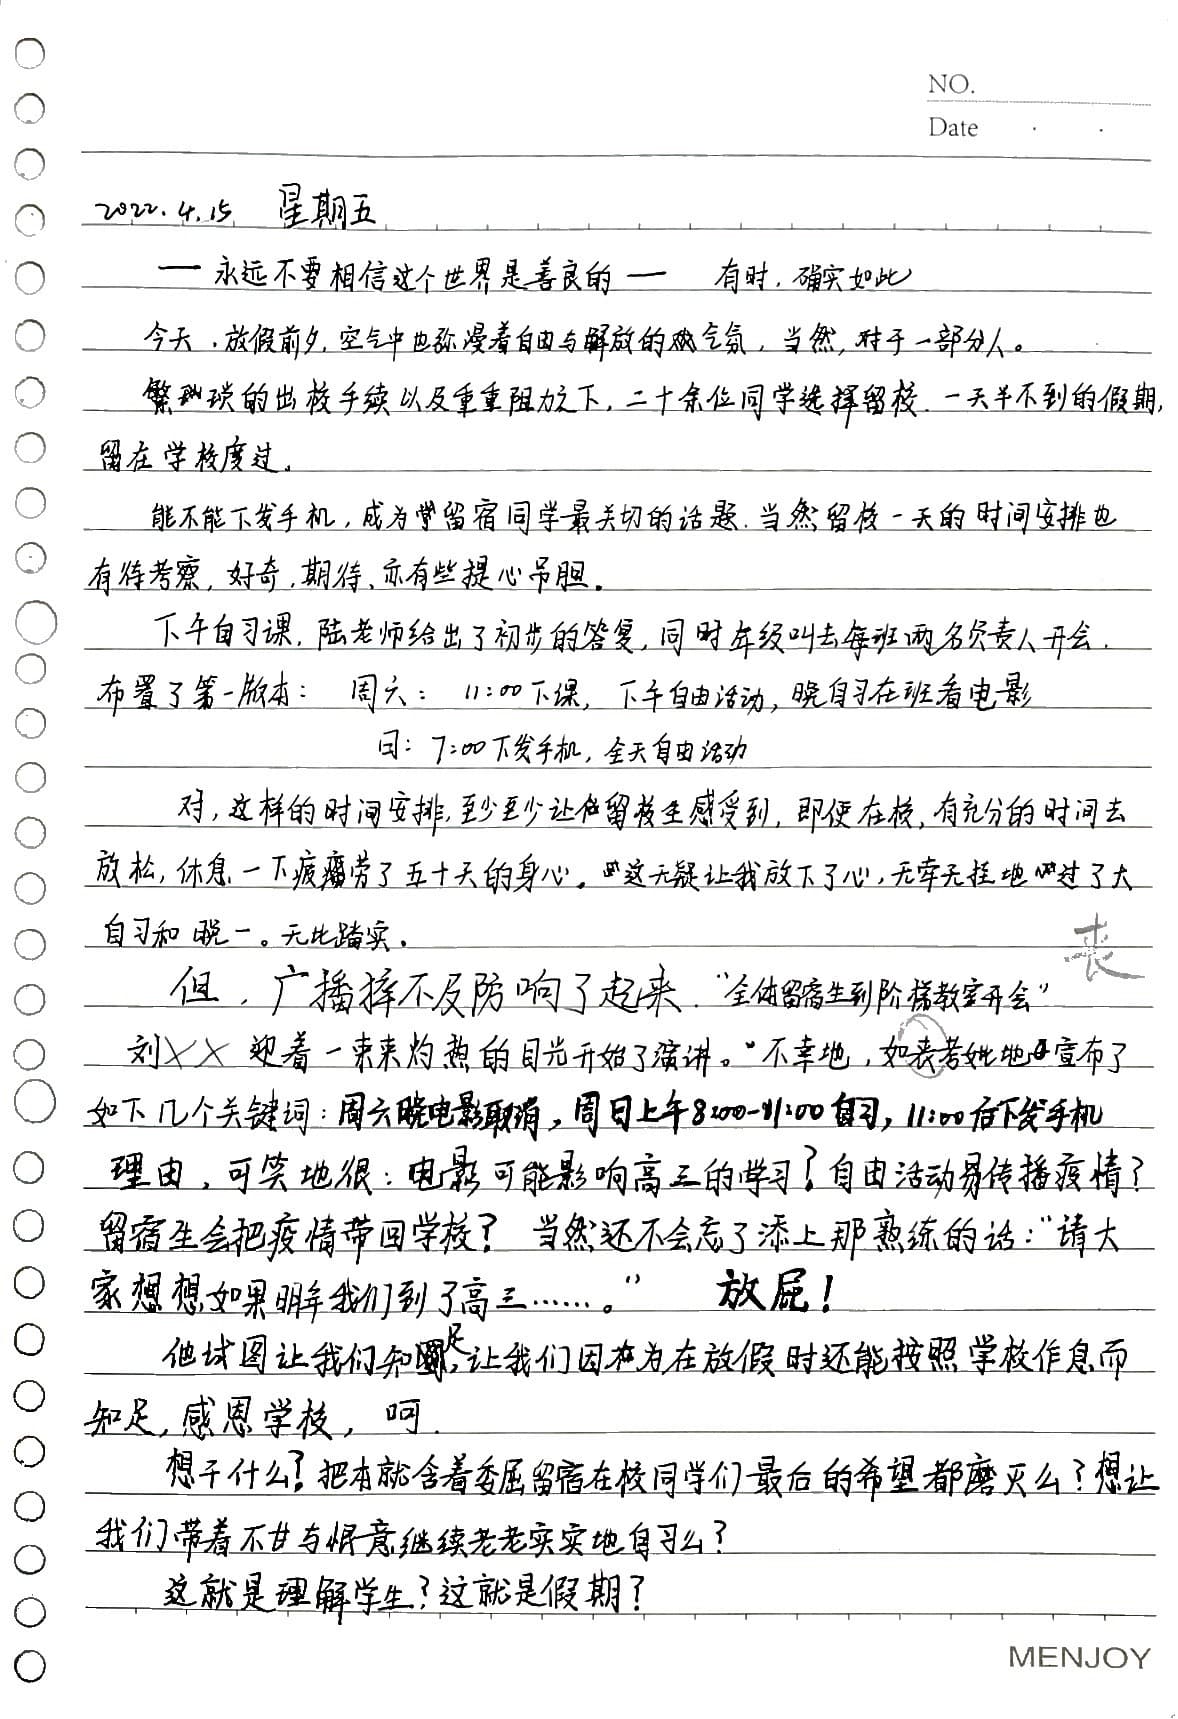 NO.
Date
2022.4.15 星期五
— 永远不要相信这个世界是善良的 — 有时，确实如此
今天，放假前夕，空气中也弥漫着自由与解放的气氛，当然，对于一部分人。
繁琐的出校手续以及重重阻力之下，二十余位同学选择留校．一天半不到的假期，
留在学校度过。
能不能下发手机，成为留宿同学最关切的话题．当然留校一天的时间安排也
有待考察，好奇，期待、亦有些提心吊胆。
下午自习课，陆老师给出了初步的答复，同时年级叫去每班两名负责人开会．
布置了第一版本： 周六： 11:00下课，下午自由活动，晚自习在班看电影
日：7:00下发手机，全天自由活动
对，这样的时间安排，至少至少让留校生感受到，即便在校，有充分的时间去
放松，休息一下疲劳了五十天的身心。这无疑让我放下了心，无牵无挂地过了大
自习和晚一。无比踏实．
丧
但，广播猝不及防响了起来．“全体留宿生到阶梯教室开会”
刘XX 迎着一束束灼热的目光开始了演讲。“不幸地，如丧考妣地宣布了
如下几个关键词：周六晚电影取消，周日上午8:00-11:00自习，11:00后下发手机
理由，可笑地很：电影可能影响高三的学习？自由活动易传播疫情？
留宿生会把疫情带回学校？ 当然还不会忘了添上那熟练的话：“请大
家想想如果明年我们到了高三……。” 放屁！
他试图让我们知足，让我们因为在放假时还能按照学校作息而
知足，感恩学校，呵．
想干什么？把本就含着委屈留宿在校同学们最后的希望都磨灭么？想让
我们带着不甘与恨意继续老老实实地自习么？
这就是理解学生？这就是假期？
MENJOY